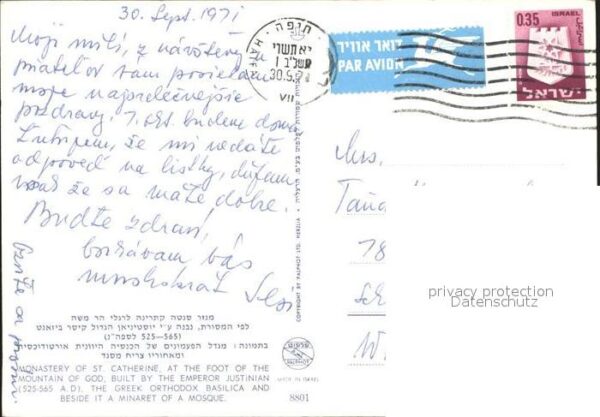 30. Sept. 1971
Moji milí, z návštevy
priateľov vám posielam
moje najsrdečnejšie
pozdravy. 7. okt. budeme doma
Ľutujem, že mi nedáte
odpoveď na listky, dúfam
však že sa máte dobre.
Buďte zdraví,
bozkávam vás
mnohokrát
Pište a
חיפה
HAIF
30.9.71
VII
דואר אוויר
PAR AVION
0.35
ISRAEL
ישראל
Mrs.
78
W.
privacy protection
Datenschutz
COPYRIGHT BY PALPHOT LTD. HERZLIA
מנזר סנטה קתרינה לרגלי הר משה
לפי המסורת, נבנה ע״י יוסטיניאן הגדול קיסר ביזאנט
(525—565 לספה״נ)
בתמונה: מגדל הפעמונים של הכנסיה היוונית אורטודוכסית
ומאחוריו צריח מסגד
MONASTERY OF ST. CATHERINE, AT THE FOOT OF THE
MOUNTAIN OF GOD, BUILT BY THE EMPEROR JUSTINIAN
(525-565 A.D). THE GREEK ORTHODOX BASILICA AND
BESIDE IT A MINARET OF A MOSQUE.
PALPHOT
MADE IN ISRAEL
8801